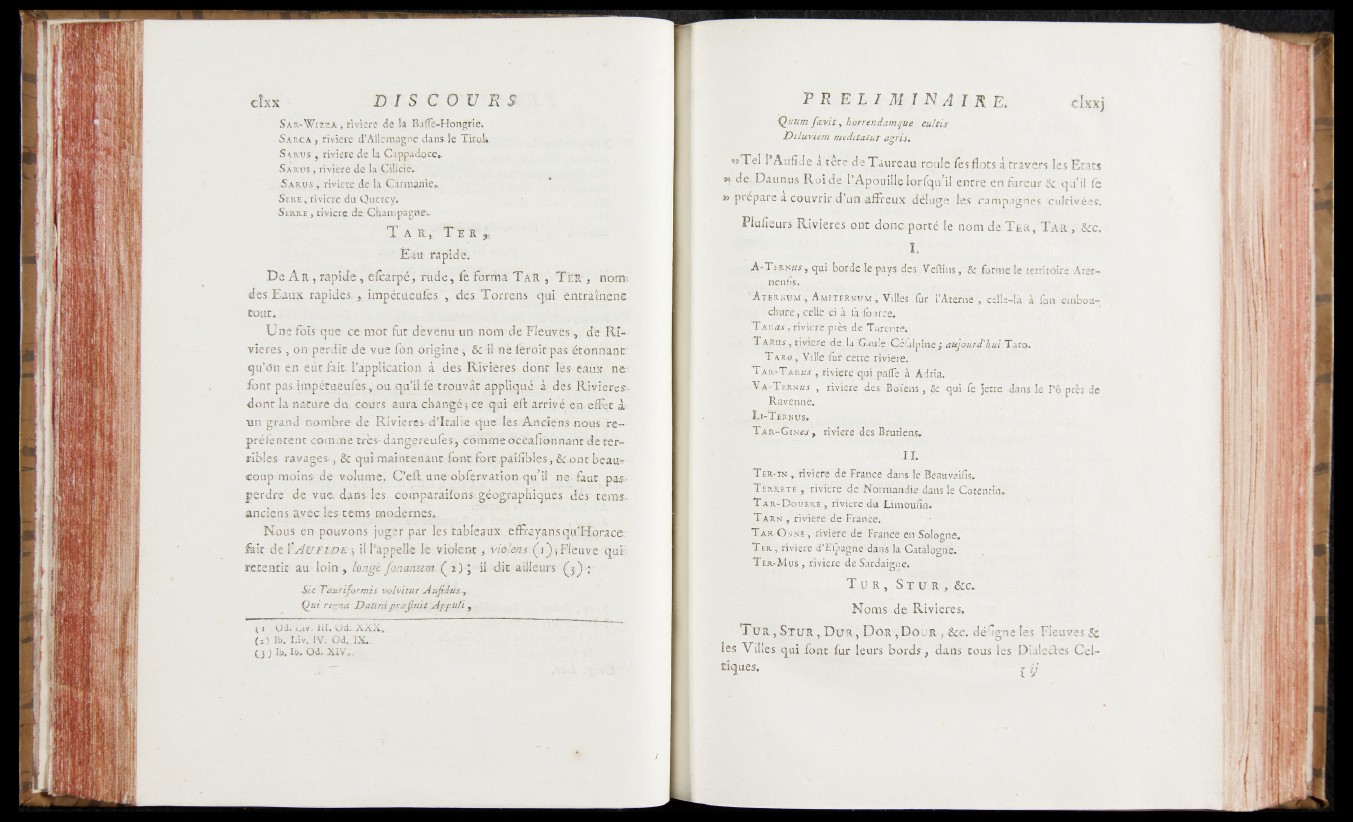 clxx DISCOURS
SAR-WIZRA, riviere de la Basse-Hongrie.
SARCA, riviere d'Allemagne dans le Tirol.
SARUS, riviere de la Cappadoce.
SARUS, riviere de la Cilicie.
SARUS, riviere de la Carmanie.
SERE, riviere du Quercy.
SERRE, riviere de Champagne.
TAR, TER,
Eau rapide.
De AR, rapide, eſcarpé, rude, ſe forma TAR, TER, nom
des Eaux rapides, impétueuſes, des Torrens qui entraînent
tout.
Une fois que ce mot fut devenu un nom de Fleuves, de Ri-
vieres, on perdit de vue ſon origine, & il ne ſeroit pas étonnant
qu'on en eût fait l'application à des Rivieres dont les eaux ne
ſont pas impétueuſes, ou qu'il ſe trouvât appliqué à des Rivieres
dont la nature du cours aura changé; ce qui eſt arrivé en effet à
un grand nombre de Rivieres d'Italie que les Anciens nous re-
préſentent comme très-dangereuſes, comme occaſionnant de ter-
ribles ravages, & qui maintenant ſont fort paiſibles, & ont beau-
coup moins de volume. C'eſt une obſervation qu'il ne faut pas
perdre de vue dans les comparaiſons géographiques des tems
anciens avec les tems modernes.
Nous en pouvons juger par les tableaux effrayans qu'Horace
fait de l'AUFIDE; il l'appelle le violent, violens (1); Fleuve qui
retentit au loin, longè ſonantem (2); il dit ailleurs (3):
Sic Tauriformis volvitur Aufidus,
Qui regna Dauni præfluit Appuli,
(1 Od. Liv. III. Od. XXX.
(2) Ib. Liv. IV. Od. IX.
(3) Ib. Ib. Od. XIV.
PRELIMINAIRE. clxxj
Quum ſævit, horrendamque cultis
Diluviem meditatur agris.
» Tel l'Aufide à tête de Taureau roule ſes flots à travers les Etats
» de Daunus Roi de l'Apouille lorſqu'il entre en fureur & qu'il ſe
» prépare à couvrir d'un affreux déluge les campagnes cultivées.
Pluſieurs Rivieres ont donc porté le nom de TER, TAR, &c.
I.
A-TERNUS, qui borde le pays des Veſtins, & forme le territoire Ater-
nenſis.
ATERNUM, AMITERNUM, Villes ſur l'Aterne, celle-là à ſon embou-
chure, celle ci à ſa ſource.
TARAS, riviere près de Tarente.
TARUS, riviere de la Gaule Céſalpine; aujourd'hui Taro.
TARO, Ville ſur cette riviere.
TAR-TARUS, riviere qui paſſe à Adria.
VA-TERNUS, riviere des Boïens, & qui ſe jette dans le Pô près de
Ravenne.
LI-TERNUS.
TAR-GINES, riviere des Brutiens.
II.
TER-IN, riviere de France dans le Beauvaiſis.
TERRETE, riviere de Normandie dans le Cotentin.
TAR-DOUERE, riviere du Limouſin.
TARN, riviere de France.
TAR-ONNE, riviere de France en Sologne.
TER, riviere d'Eſpagne dans la Catalogne.
TER-MUS, riviere de Sardaigne.
TUR, STUR, &c.
Noms de Rivieres.
TUR, STUR, DUR, DOR, DOUR, &c. déſigne les Fleuves &
les Villes qui ſont ſur leurs bords, dans tous les Dialectes Cel-
tiques. ij